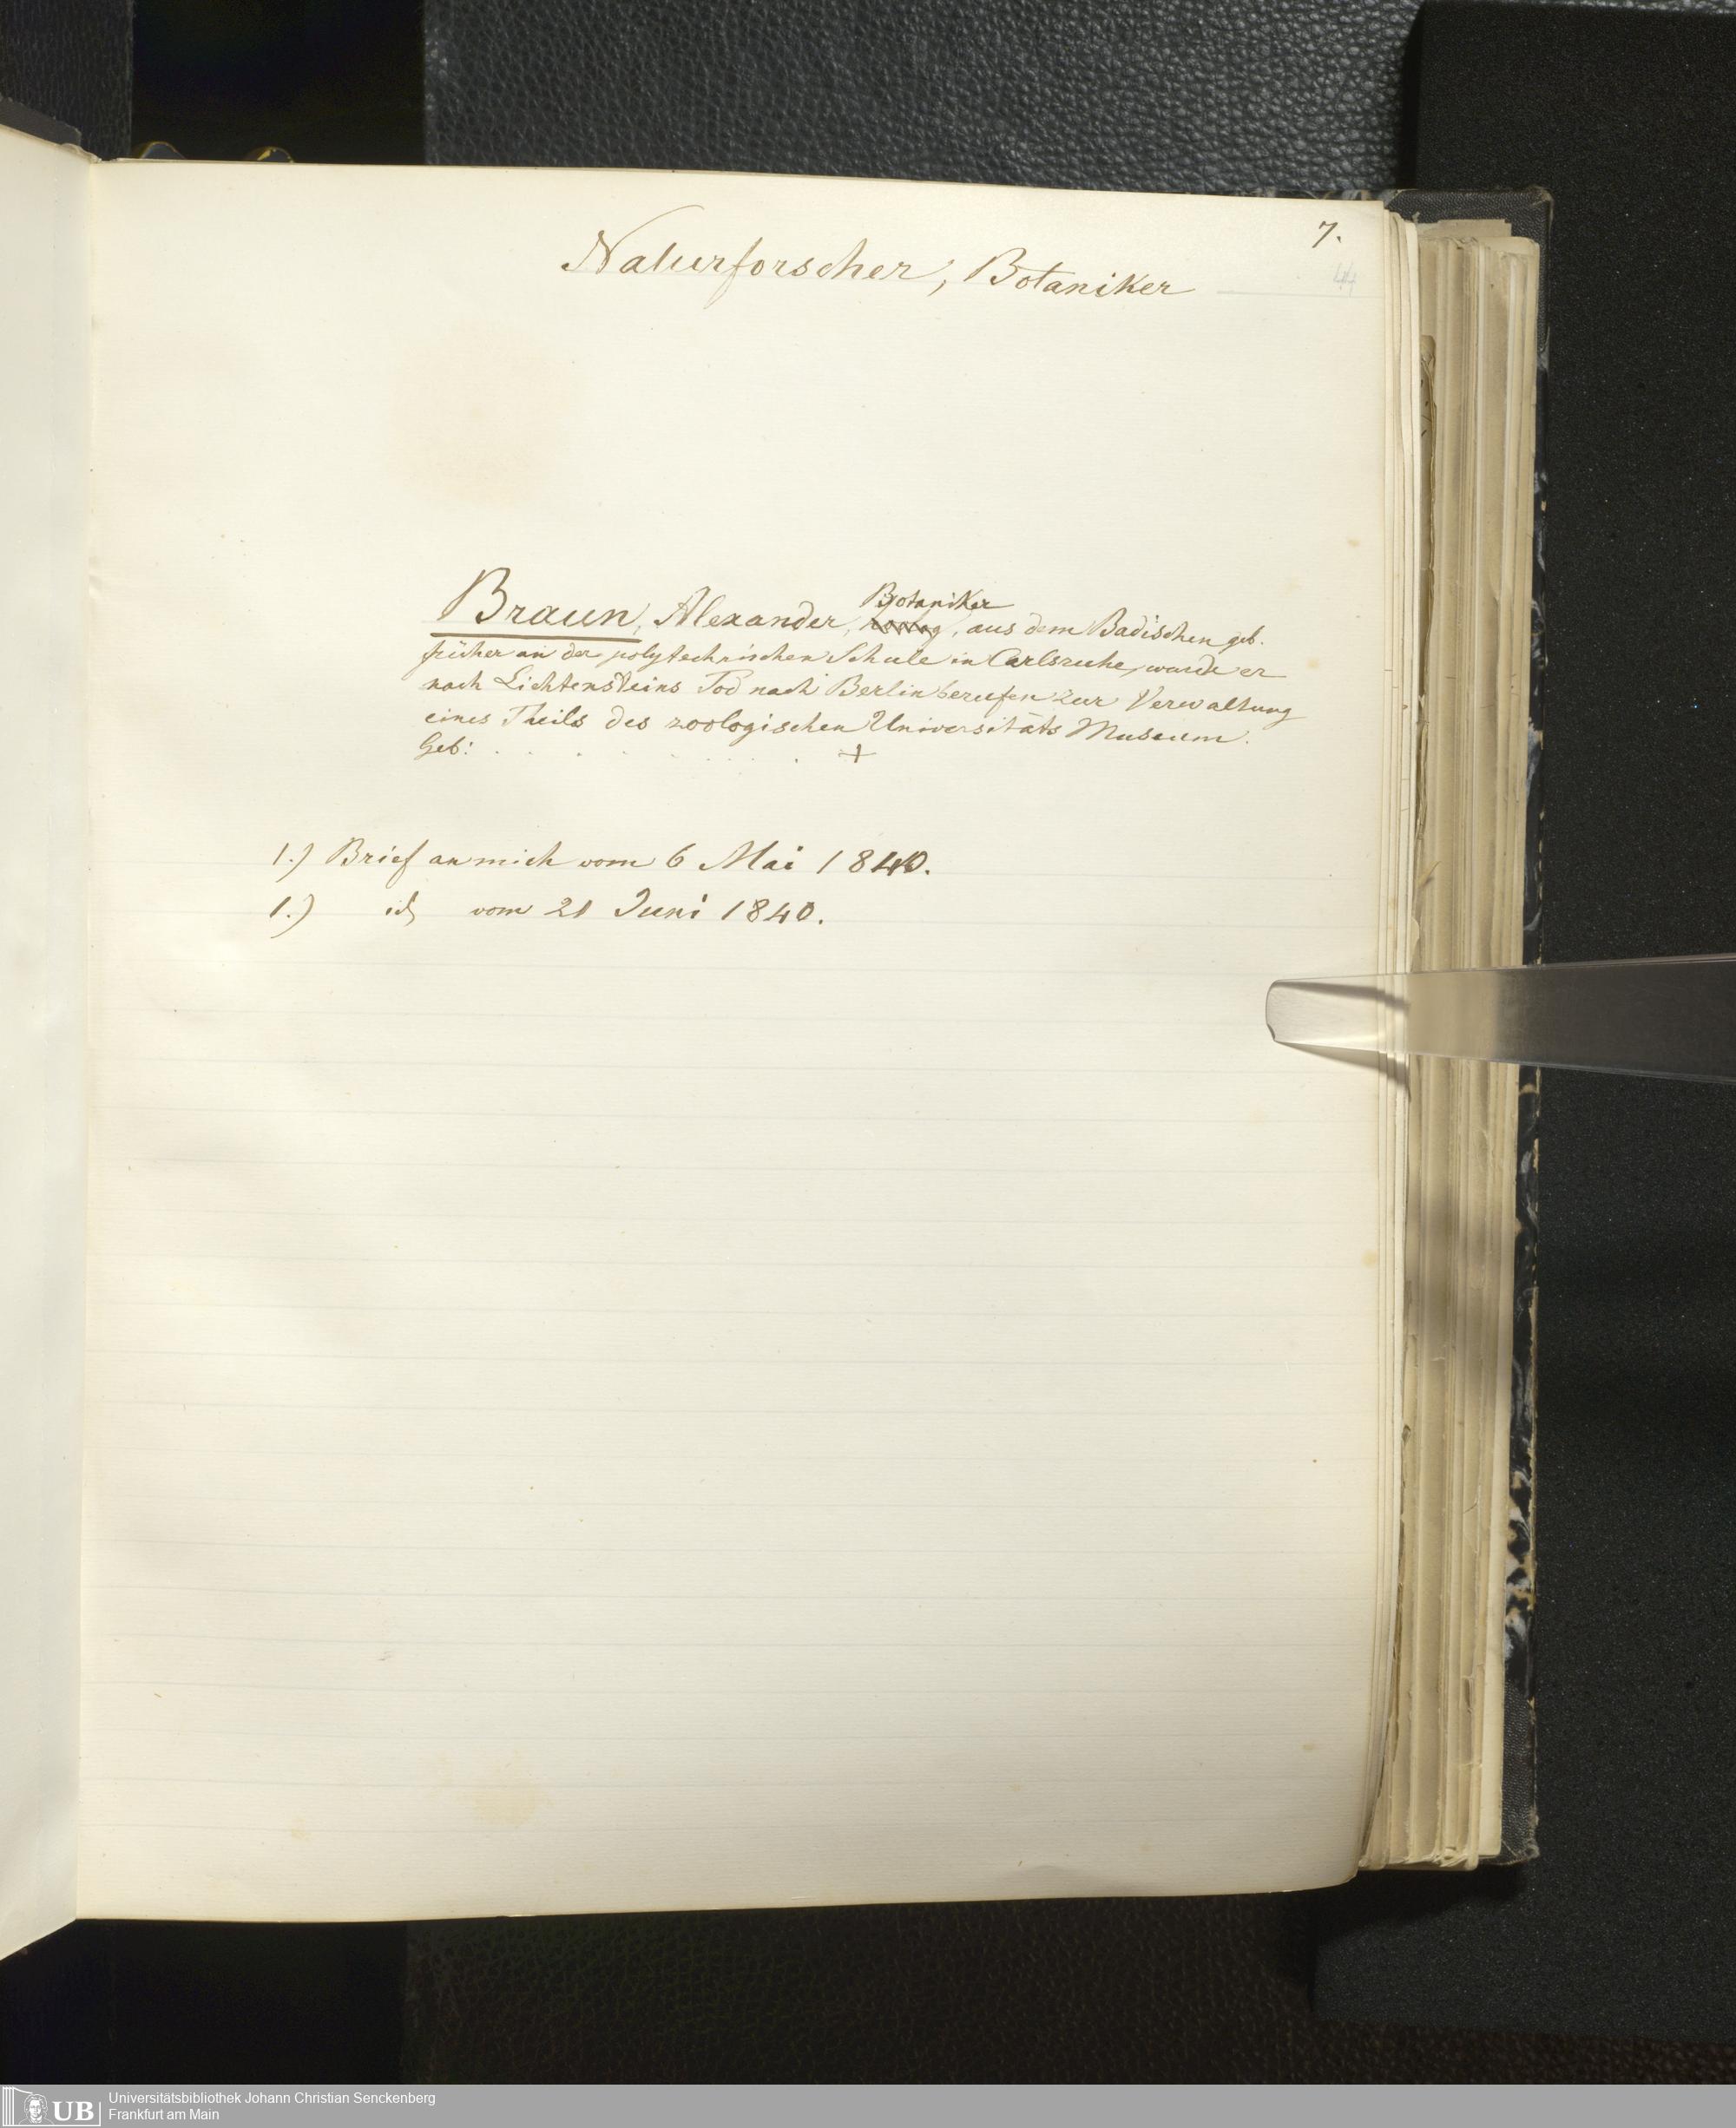 7.
44
Naturforscher, Botaniker
Botaniker
Braun, Alexander, Zoolog, aus dem Badischen geb.
früher an der polytechnischen Schule in Carlsruhe, wurde er
nach Lichtensteins Tod nach Berlin berufen zur Verwaltung
eines Theils des zoologischen Universitäts Museum.
Geb: . . . . . . . . . +
1.) Brief an mich vom 6 Mai 1840.
1.) id vom 21 Juni 1840.
UB Universitätsbibliothek Johann Christian Senckenberg
Frankfurt am Main